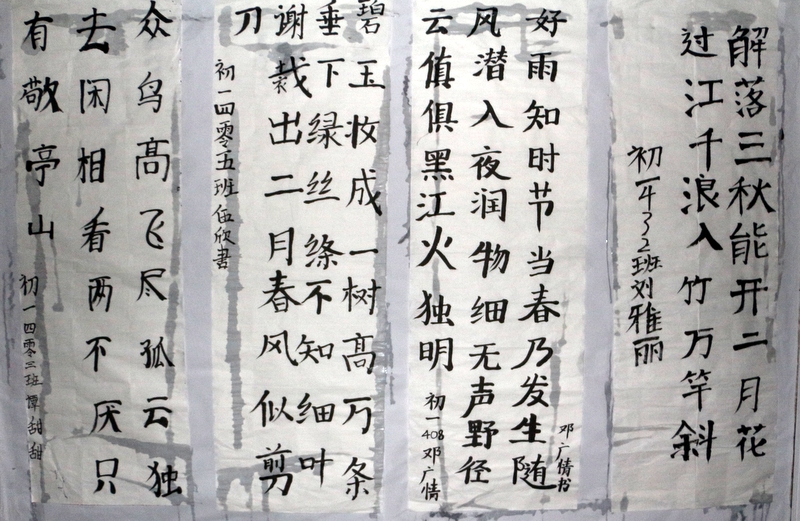 解落三秋能开二月花
过江千浪入竹万竿斜
初一432班刘雅丽
邓广倩书
好雨知时节当春乃发生随
风潜入夜润物细无声野径
云值俱黑江火独明
初一408邓广情
碧玉妆成一树高万条
垂下绿丝绦不知细叶
谢裁出二月春风似剪
刀
初一四零五班伍欣書
众鸟高飞尽孤云独
去闲相看两不厌只
有敬亭山
初一四零三班谭甜甜